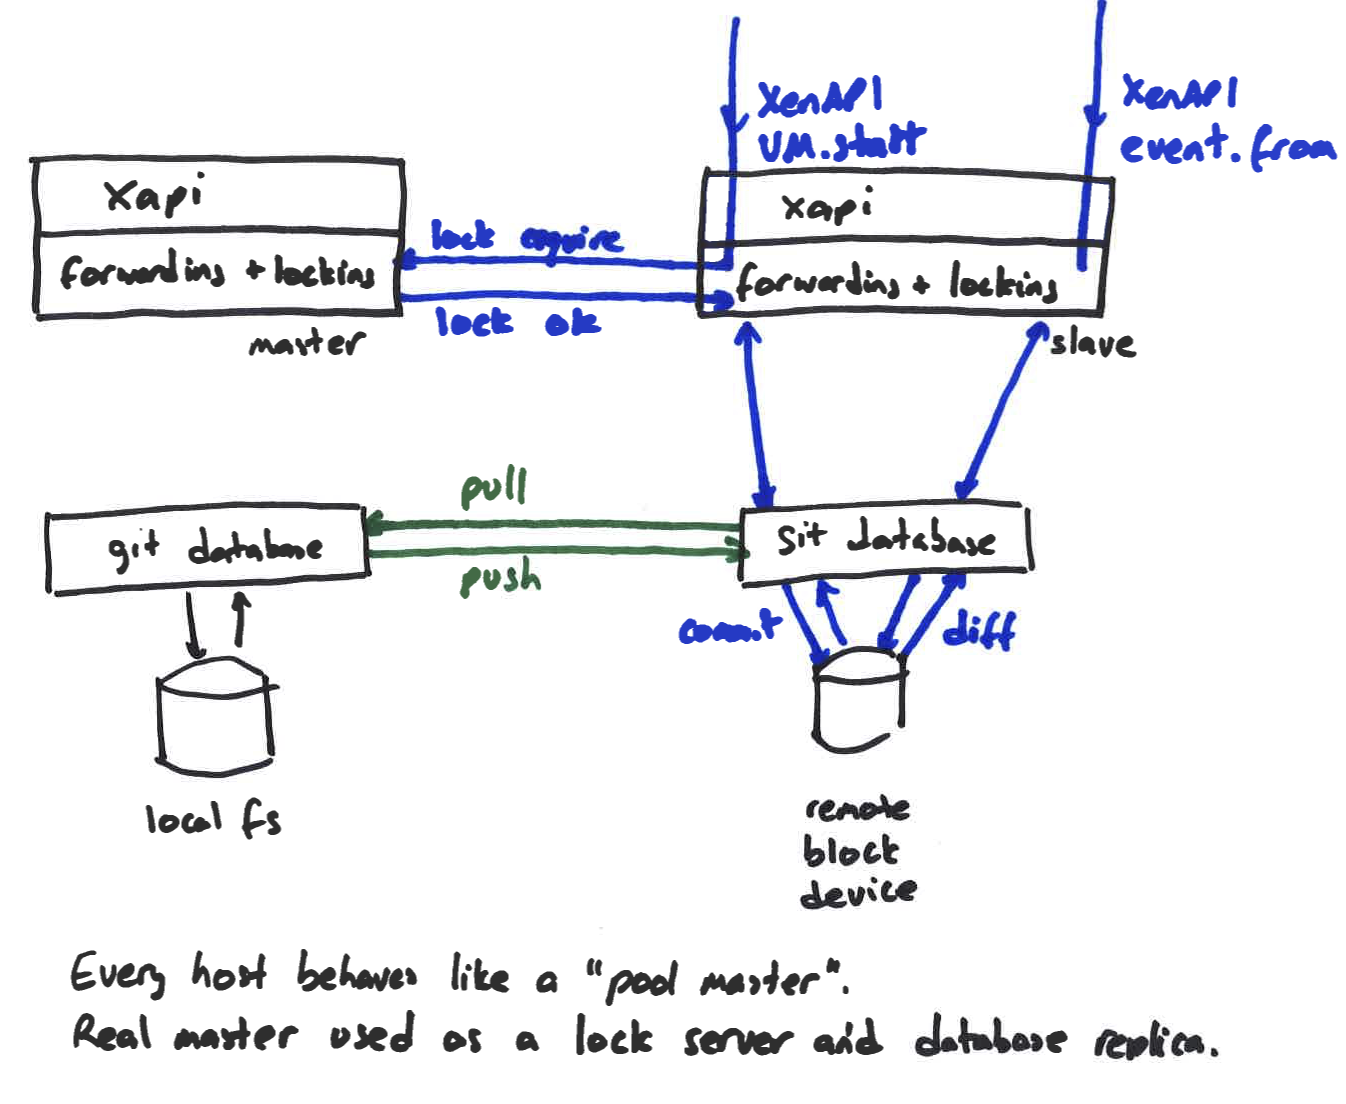 XenAPI
VM.start
XenAPI
event.from
xapi
forwarding + locking
master
lock acquire
lock ok
xapi
forwarding + locking
slave
pull
push
git database
git database
commit
diff
local fs
remote
block
device
Every host behaves like a "pool master".
Real master used as a lock server and database replica.